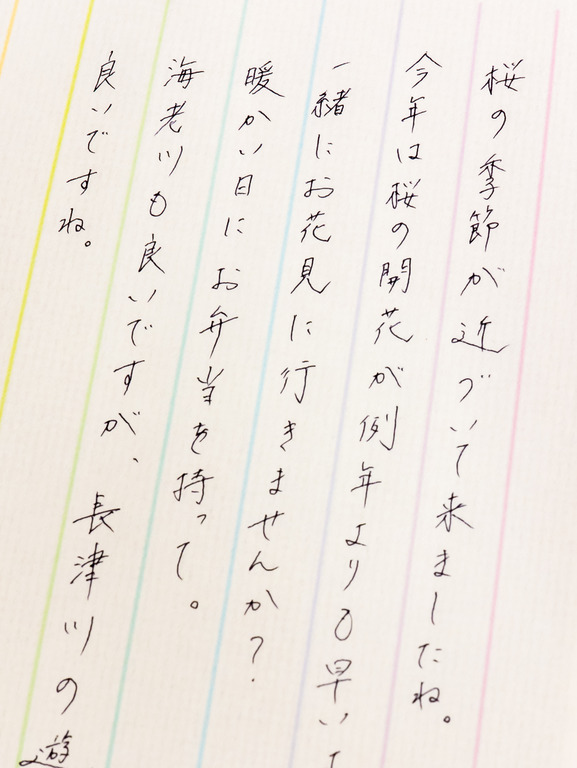 桜の季節が近づいて来ましたね。
今年は桜の開花が例年よりも早い
一緒にお花見に行きませんか？
暖かい日にお弁当を持って。
海老川も良いですが、長津川の遊
良いですね。